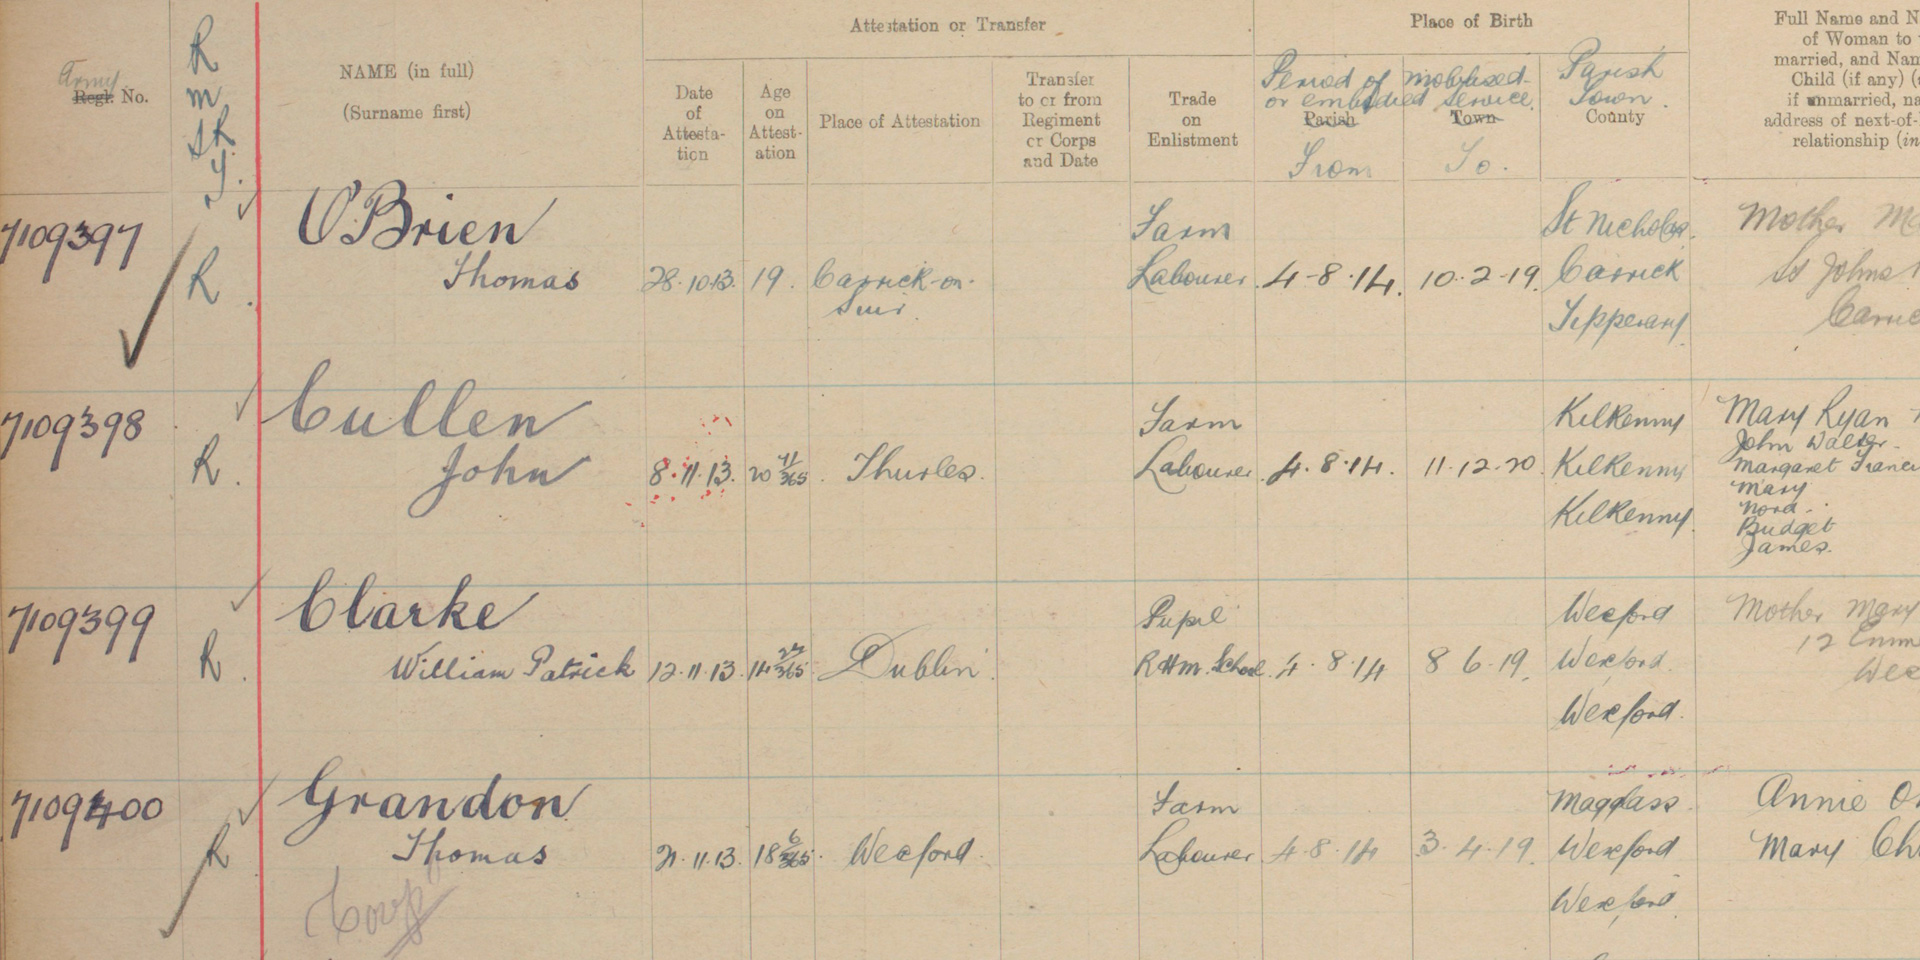 Attestation or Transfer
Place of Birth
Army
Regl. No.
R
m
SR
NAME (in full)
(Surname first)
Date
of
Attesta-
tion
Age
on
Attest-
ation
Place of Attestation
Transfer
to or from
Regiment
or Corps
and Date
Trade
on
Enlistment
Period of mobilised
or embodied Service.
Parish
Town
From
To.
Parish
Town.
County
Full Name and N
of Woman to
married, and Nam
Child (if any) (
if unmarried, na
address of next-of-
relationship (in
7109397
R.
O'Brien
Thomas
28.10.13.
19.
Carrick-on-
Suir.
Farm
Labourer.
4-8.14.
10.2-19.
St Nicholas.
Carrick
Tipperary
Mother
St Johns
Carric
7109398
R.
Cullen
John
8.11.13.
20 11/365.
Thurles.
Farm
Labourer.
4.8.14.
11.12.20.
KilKenny
KilKenny
KilKenny.
Mary Ryan
John Walter.
Margaret Franci
Mary
Nora.
Bridget
James.
7109399
R.
Clarke
William Patrick
12.11.13.
14 27/365.
Dublin.
Pupil
R.H.M. School.
4.8.14
8 6.19.
Wexford
Wexford.
Wexford.
Mother Mary
12 Emm
Wex
7109400
R
Grandon
Thomas
21.11.13.
18 6/365.
Wexford.
Farm
Labourer
4.8.14
3.4.19.
Wexford
Wexford.
Annie
Mary Ch